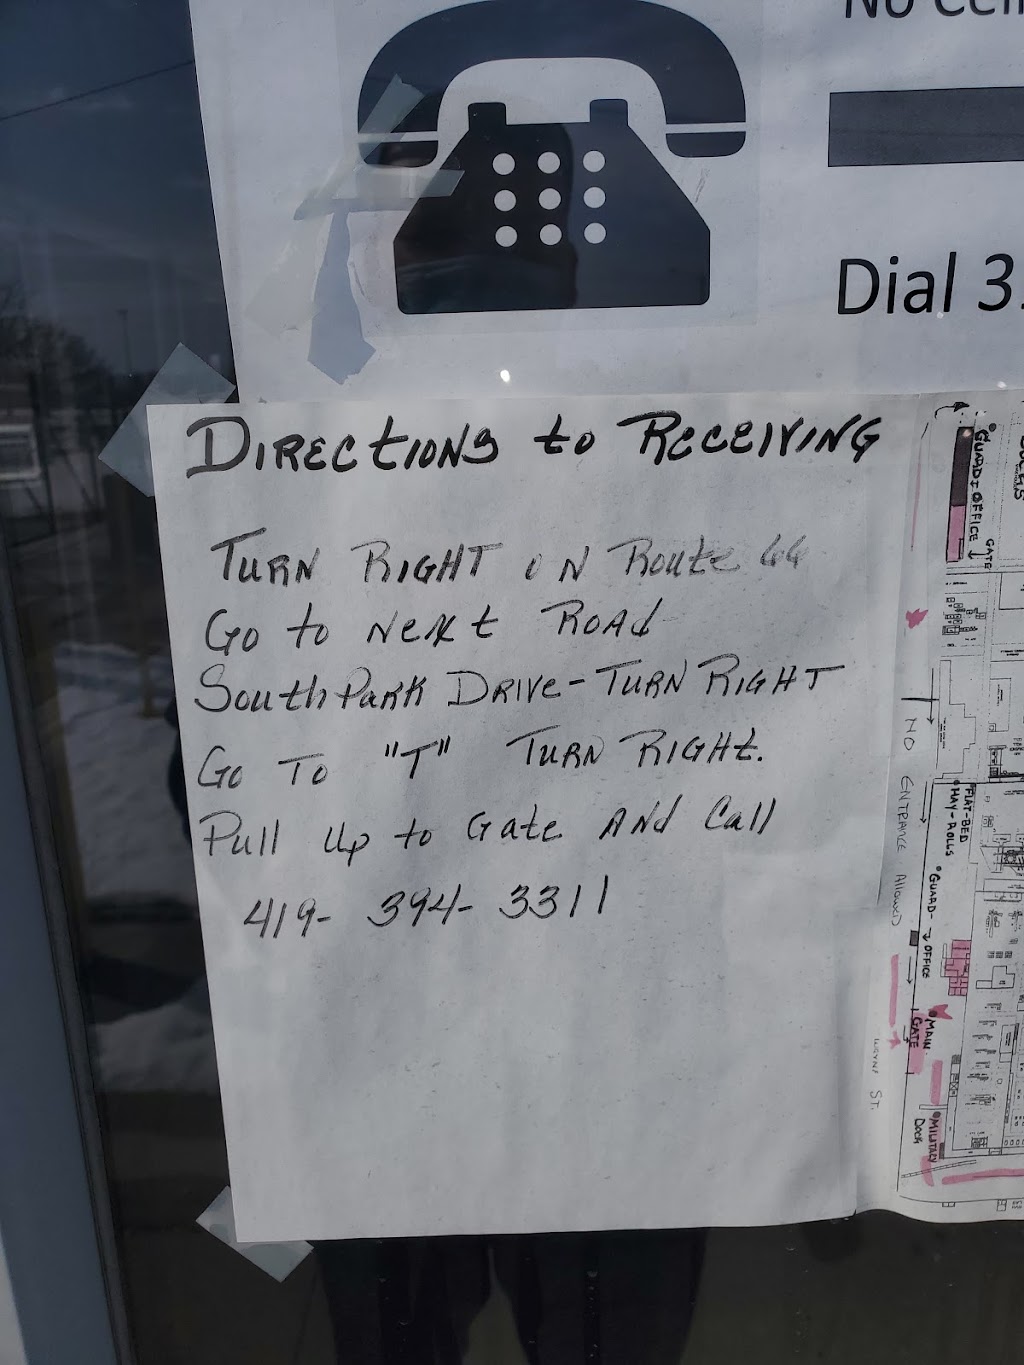 No Cell
Dial 3
DIRECTIONS to RECEIVING
TURN RIGHT ON Route 66
Go to Next ROAD
South PARK DRIVE - TURN RIGHT
Go To "T" TURN RIGHT.
Pull Up to Gate AND Call
419- 394- 3311
GUARD + OFFICE
GATE
NO ENTRANCE Allowed
FLAT-BED
HAY-ROLLS
GUARD-
OFFICE
MAIN
GATE
MILITARY
DOOR
ST.